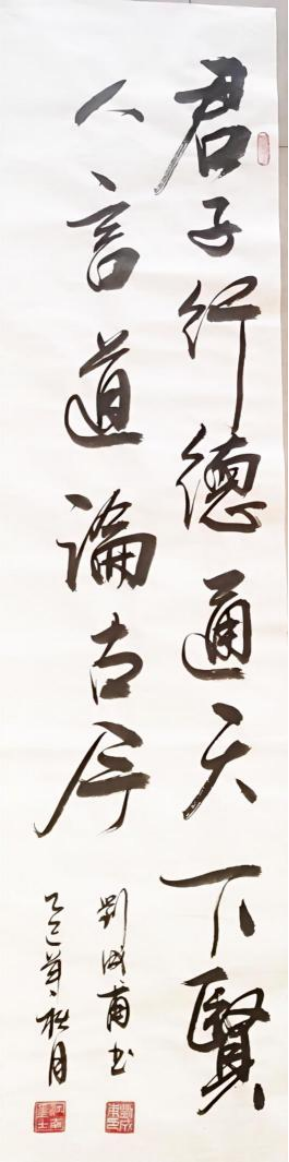 君子行德通天下賢
人言道論古今
劉成甫书
乙巳年秋月